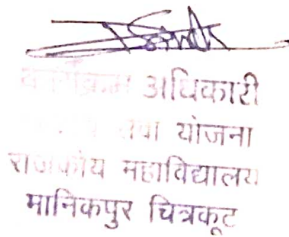 कार्यक्रम अधिकारी
सेवा योजना
राजकीय महाविद्यालय
मानिकपुर चित्रकूट